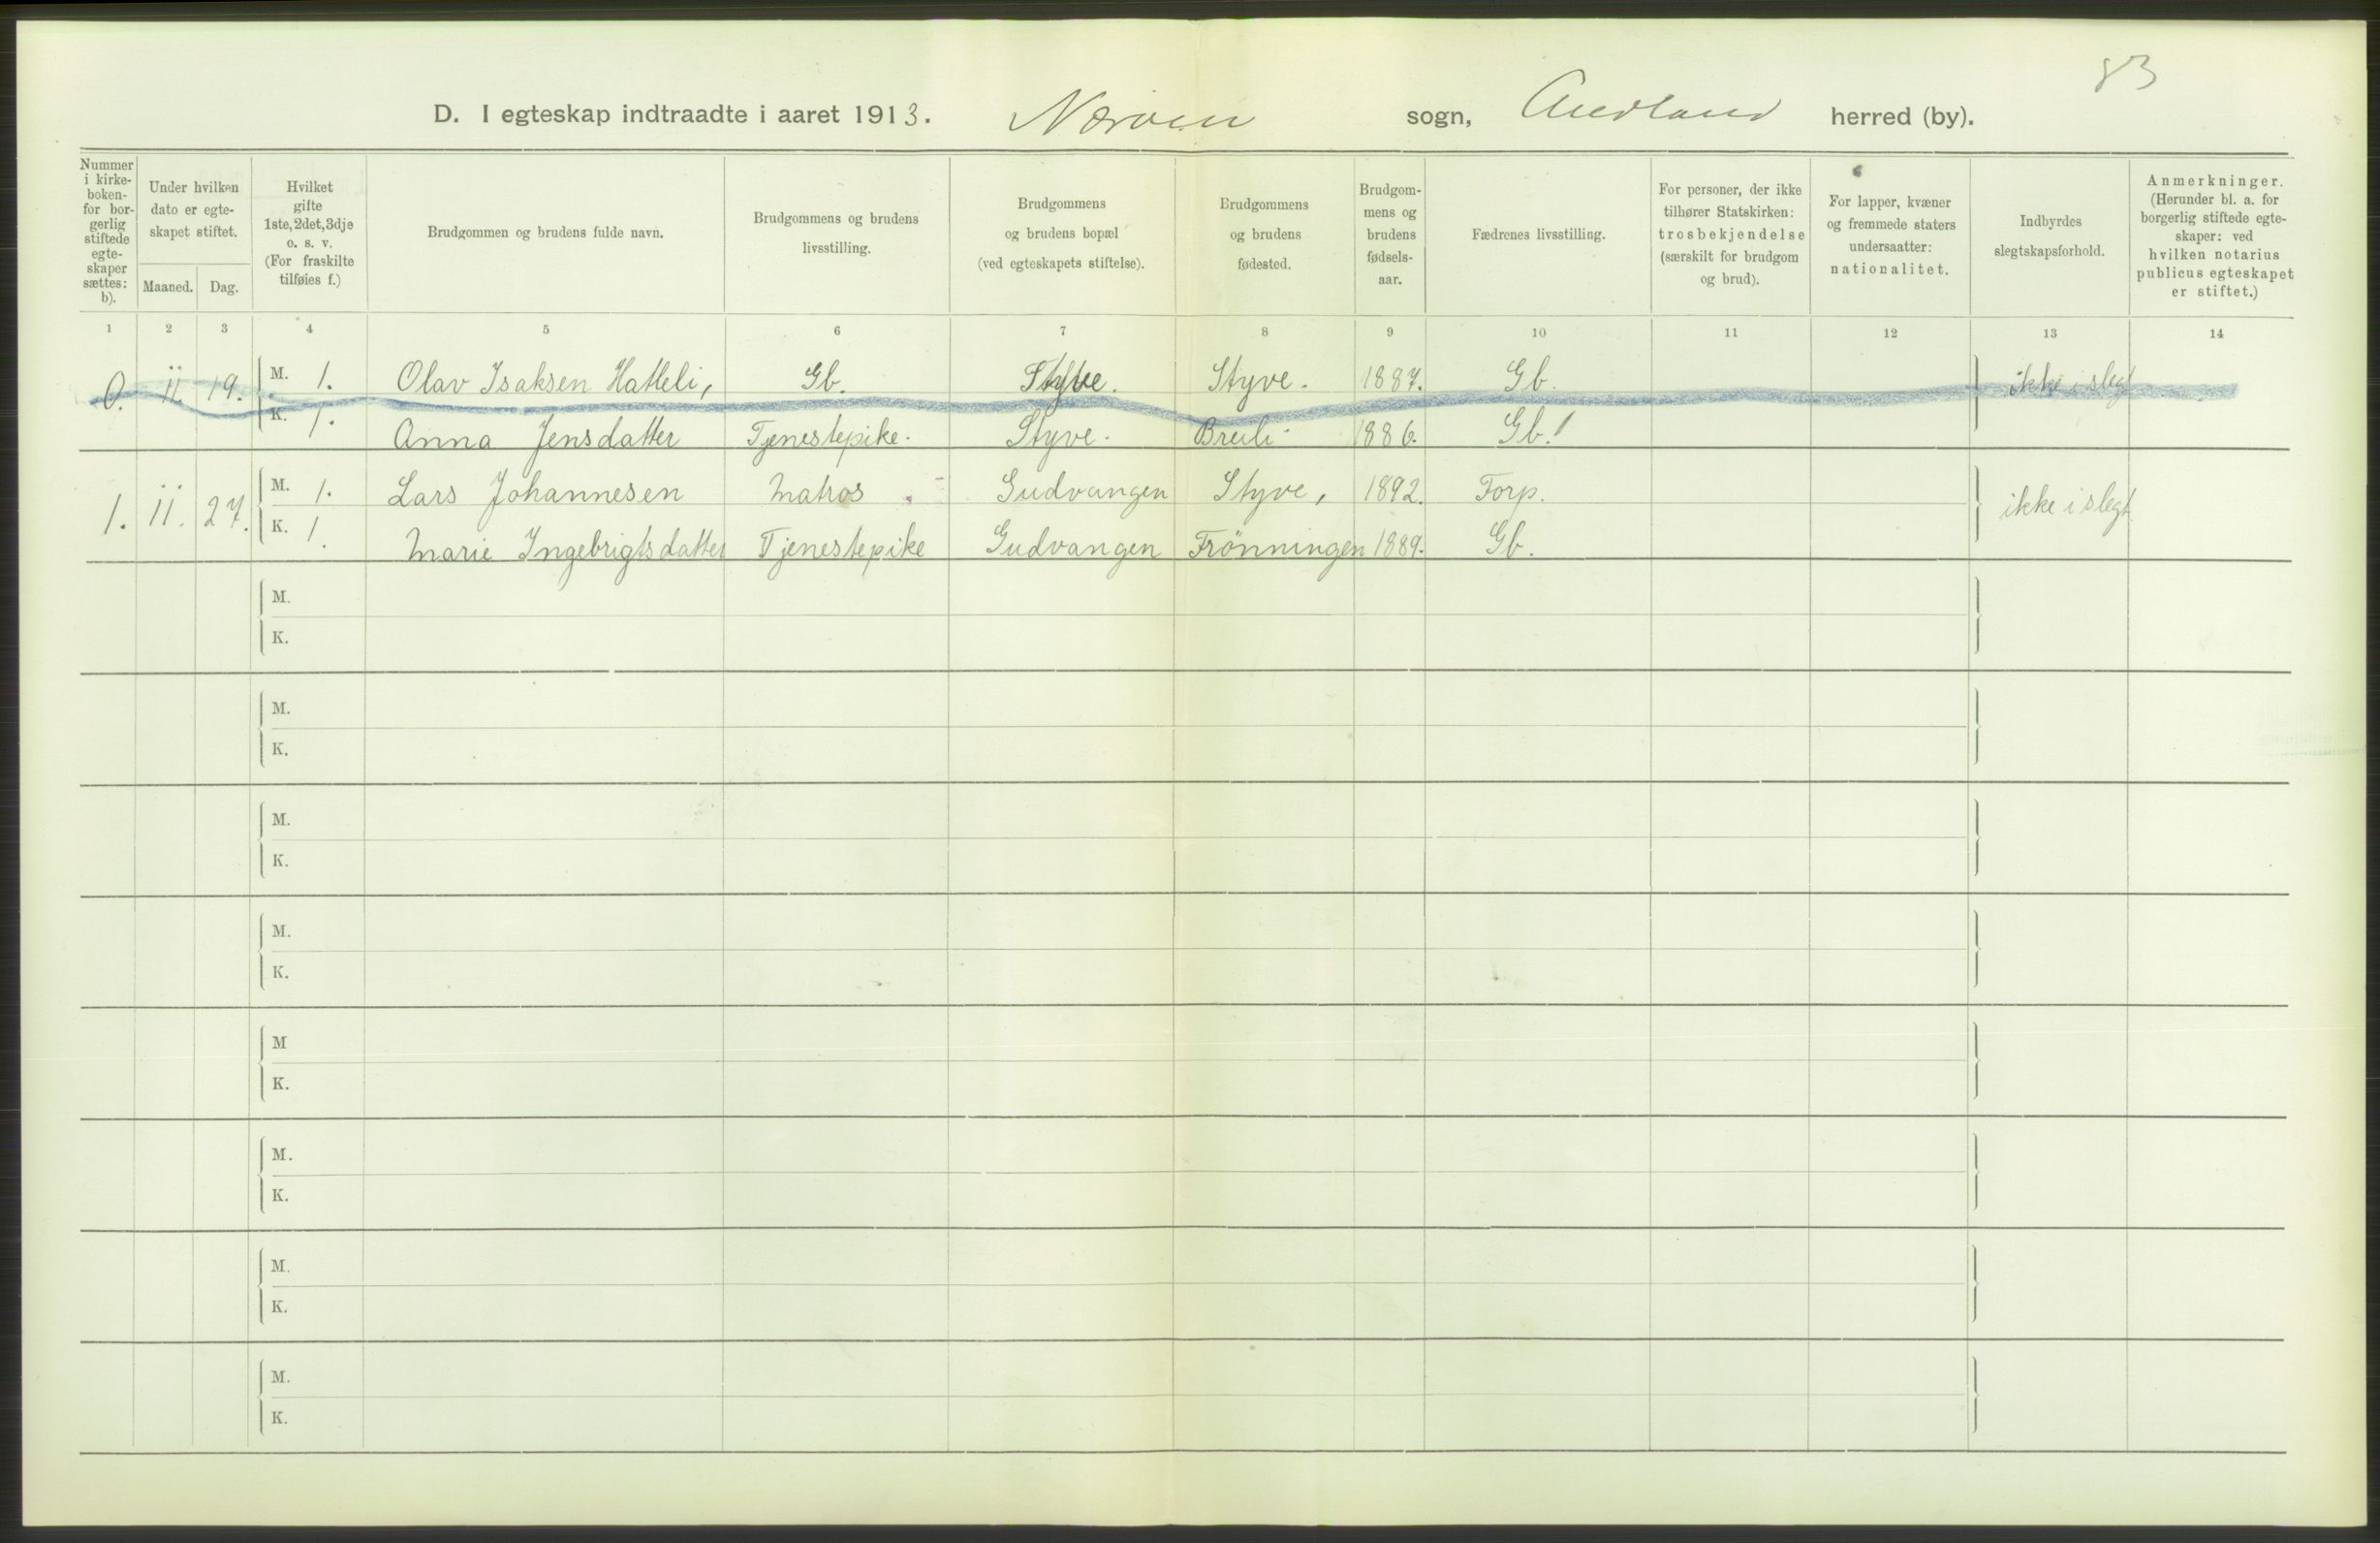 83
D. I egteskap indtraadte i aaret 1913. Nærøen sogn, Aurland herred (by).
Nummer i kirke-boken- for bor-gerlig stiftede egte-skaper sættes: b).
Under hvilken dato er egte-skapet stiftet.
Maaned. Dag.
Hvilket gifte 1ste, 2det, 3dje o. s. v. (For fraskilte tilføies f.)
Brudgommen og brudens fulde navn.
Brudgommens og brudens livsstilling.
Brudgommens og brudens bopæl (ved egteskapets stiftelse).
Brudgommens og brudens fødested.
Brudgom-mens og brudens fødsels-aar.
Fædrenes livsstilling.
For personer, der ikke tilhører Statskirken: trosbekjendelse (særskilt for brudgom og brud).
For lapper, kvæner og fremmede staters undersaatter: nationalitet.
Indbyrdes slegtskapsforhold.
Anmerkninger. (Herunder bl. a. for borgerlig stiftede egte-skaper: ved hvilken notarius publicus egteskapet er stiftet.)
1 2 3 4 5 6 7 8 9 10 11 12 13 14
0. 11. 19. M. 1. Olav Isaksen Hatleli, Gb. Styve. Styve. 1887. Gb. ikke i slegt
K. 1. Anna Jensdatter Tjenestepike. Styve. Breili 1886. Gb.
1. 11. 27. M. 1. Lars Johannesen Matros. Gudvangen Styve, 1892. Forp. ikke i slegt
K. 1. Marie Ingebrigtsdatter Tjenestepike Gudvangen Frönningen 1889. Gb.
M.
K.
M.
K.
M.
K.
M.
K.
M
K.
M.
K.
M.
K.
M.
K.